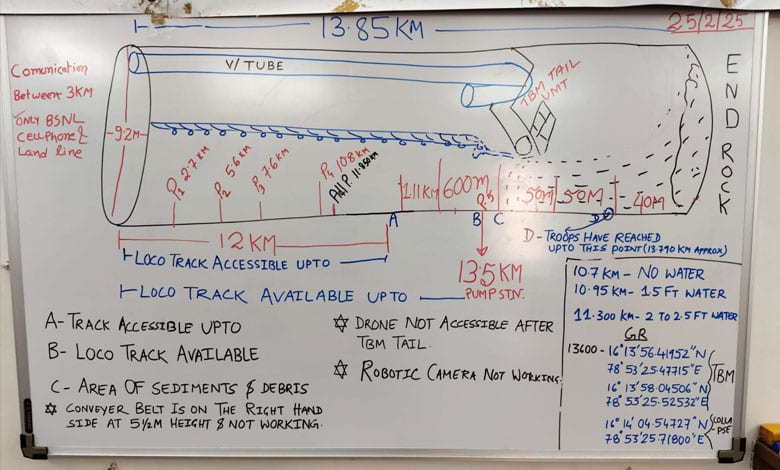 13.85KM
25/2/25
Comunication
Between 3KM
ONLY BSNL
Cellphone &
Land line
V/TUBE
TBM TAIL
UNIT
END ROCK
9.2M
P1 2.7 KM
P2 5.6 KM
P3 7.6 KM
P4 10.8 KM
11.950KM
1.11 KM
600M
P5
50M
50M
40M
A
B
C
D
12 KM
LOCO TRACK ACCESSIBLE UPTO
LOCO TRACK AVAILABLE UPTO
13.5 KM
PUMP STN.
D - TROOPS HAVE REACHED
UPTO THIS POINT (13.790 KM APPROX)
A- TRACK ACCESSIBLE UPTO
B- LOCO TRACK AVAILABLE
C- AREA OF SEDIMENTS & DEBRIS
CONVEYER BELT IS ON THE RIGHT HAND
SIDE AT 5½M HEIGHT & NOT WORKING.
DRONE NOT ACCESSIBLE AFTER
TBM TAIL.
ROBOTIC CAMERA NOT WORKING.
10.7 KM - NO WATER
10.95 KM - 1.5 FT WATER
11.300 KM - 2 TO 2.5 FT WATER
GR
13600 - 16°13'56.41952"N
78°53'25.47715"E
16°13'58.04506"N
78°53'25.52532"E
TBM
16°14'04.54727"N
78°53'25.71800"E
COLLA
PSE